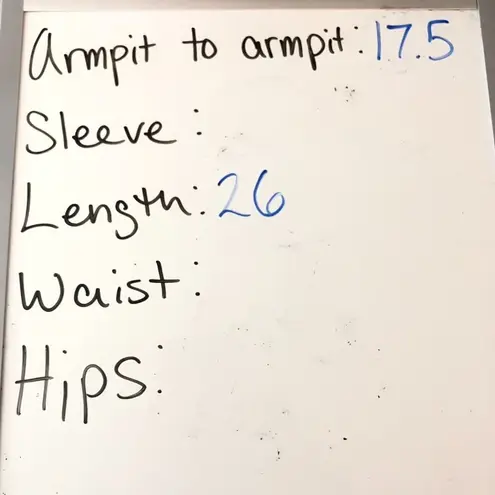 Armpit to armpit: 17.5
Sleeve:
Length: 26
Waist:
Hips: